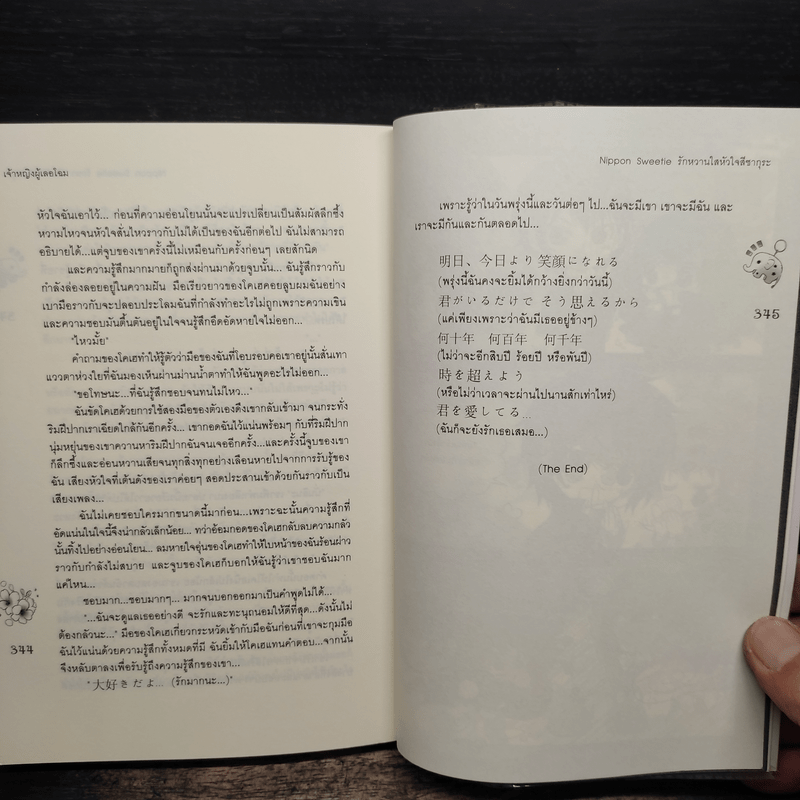 เจ้าหญิงผู้เลอโฉม
หัวใจฉันเอาไว้... ก่อนที่ความอ่อนโยนนั้นจะแปรเปลี่ยนเป็นสัมผัสลึกซึ้ง
หวามไหวจนหัวใจสั่นไหวราวกับไม่ได้เป็นของฉันอีกต่อไป ฉันไม่สามารถ
อธิบายได้...แต่จูบของเขาครั้งนี้ไม่เหมือนกับครั้งก่อนๆ เลยสักนิด
และความรู้สึกมากมายก็ถูกส่งผ่านมาด้วยจูบนั้น... ฉันรู้สึกราวกับ
กำลังล่องลอยอยู่ในความฝัน มือเรียวยาวของโคเฮคอยลูบผมฉันอย่าง
เบามือราวกับจะปลอบประโลมฉันที่กำลังทำอะไรไม่ถูกเพราะความเขิน
และความชอบมันตื้นตันอยู่ในใจจนรู้สึกอึดอัดหายใจไม่ออก...
"ไหวมั้ย"
คำถามของโคเฮทำให้รู้ตัวว่ามือของฉันที่โอบรอบคอเขาอยู่นั้นสั่นเทา
แววตาห่วงใยที่ฉันมองเห็นผ่านม่านน้ำตาทำให้ฉันพูดอะไรไม่ออก...
"ขอโทษนะ...ที่ฉันรู้สึกชอบจนทนไม่ไหว..."
ฉันขัดโคเฮด้วยการใช้สองมือของตัวเองดึงเขากลับเข้ามา จนกระทั่ง
ริมฝีปากเราเฉียดใกล้กันอีกครั้ง... เขากอดฉันไว้แน่นพร้อมๆ กับที่ริมฝีปาก
นุ่มหยุ่นของเขาควานหาริมฝีปากฉันจนเจออีกครั้ง...และครั้งนี้จูบของเขา
ก็ลึกซึ้งและอ่อนหวานเสียจนทุกสิ่งทุกอย่างเลือนหายไปจากการรับรู้ของ
ฉัน เสียงหัวใจที่เต้นดังของเราค่อยๆ สอดประสานเข้าด้วยกันราวกับเป็น
เสียงเพลง...
ฉันไม่เคยชอบใครมากขนาดนี้มาก่อน...เพราะฉะนั้นความรู้สึกที่
อัดแน่นในใจนี้จึงน่ากลัวเล็กน้อย... ทว่าอ้อมกอดของโคเฮกลับลบความกลัว
นั้นทิ้งไปอย่างอ่อนโยน... ลมหายใจอุ่นของโคเฮทำให้ใบหน้าของฉันร้อนผ่าว
ราวกับกำลังไม่สบาย และจูบของโคเฮก็บอกให้ฉันรู้ว่าเขาชอบฉันมาก
แค่ไหน...
ชอบมาก...ชอบมากๆ... มากจนบอกออกมาเป็นคำพูดไม่ได้...
"...ฉันจะดูแลเธออย่างดี จะรักและทะนุถนอมให้ดีที่สุด...ดังนั้นไม่
ต้องกลัวนะ..." มือของโคเฮเกี่ยวกระหวัดเข้ากับมือฉันก่อนที่เขาจะกุมมือ
ฉันไว้แน่นด้วยความรู้สึกทั้งหมดที่มี ฉันยิ้มให้โคเฮแทนคำตอบ...จากนั้น
จึงหลับตาลงเพื่อรับรู้ถึงความรู้สึกของเขา...
"大好きだよ... (รักมากนะ...)"
344
Nippon Sweetie รักหวานใสหัวใจสีซากุระ
เพราะรู้ว่าในวันพรุ่งนี้และวันต่อๆ ไป...ฉันจะมีเขา เขาจะมีฉัน และ
เราจะมีกันและกันตลอดไป...
明日、今日より 笑顔になれる
(พรุ่งนี้ฉันคงจะยิ้มได้กว้างยิ่งกว่าวันนี้)
君がいるだけで そう思えるから
(แค่เพียงเพราะว่าฉันมีเธออยู่ข้างๆ)
何十年 何百年 何千年
(ไม่ว่าจะอีกสิบปี ร้อยปี หรือพันปี)
時を超えよう
(หรือไม่ว่าเวลาจะผ่านไปนานสักเท่าไหร่)
君を愛してる...
(ฉันก็จะยังรักเธอเสมอ...)
(The End)
345